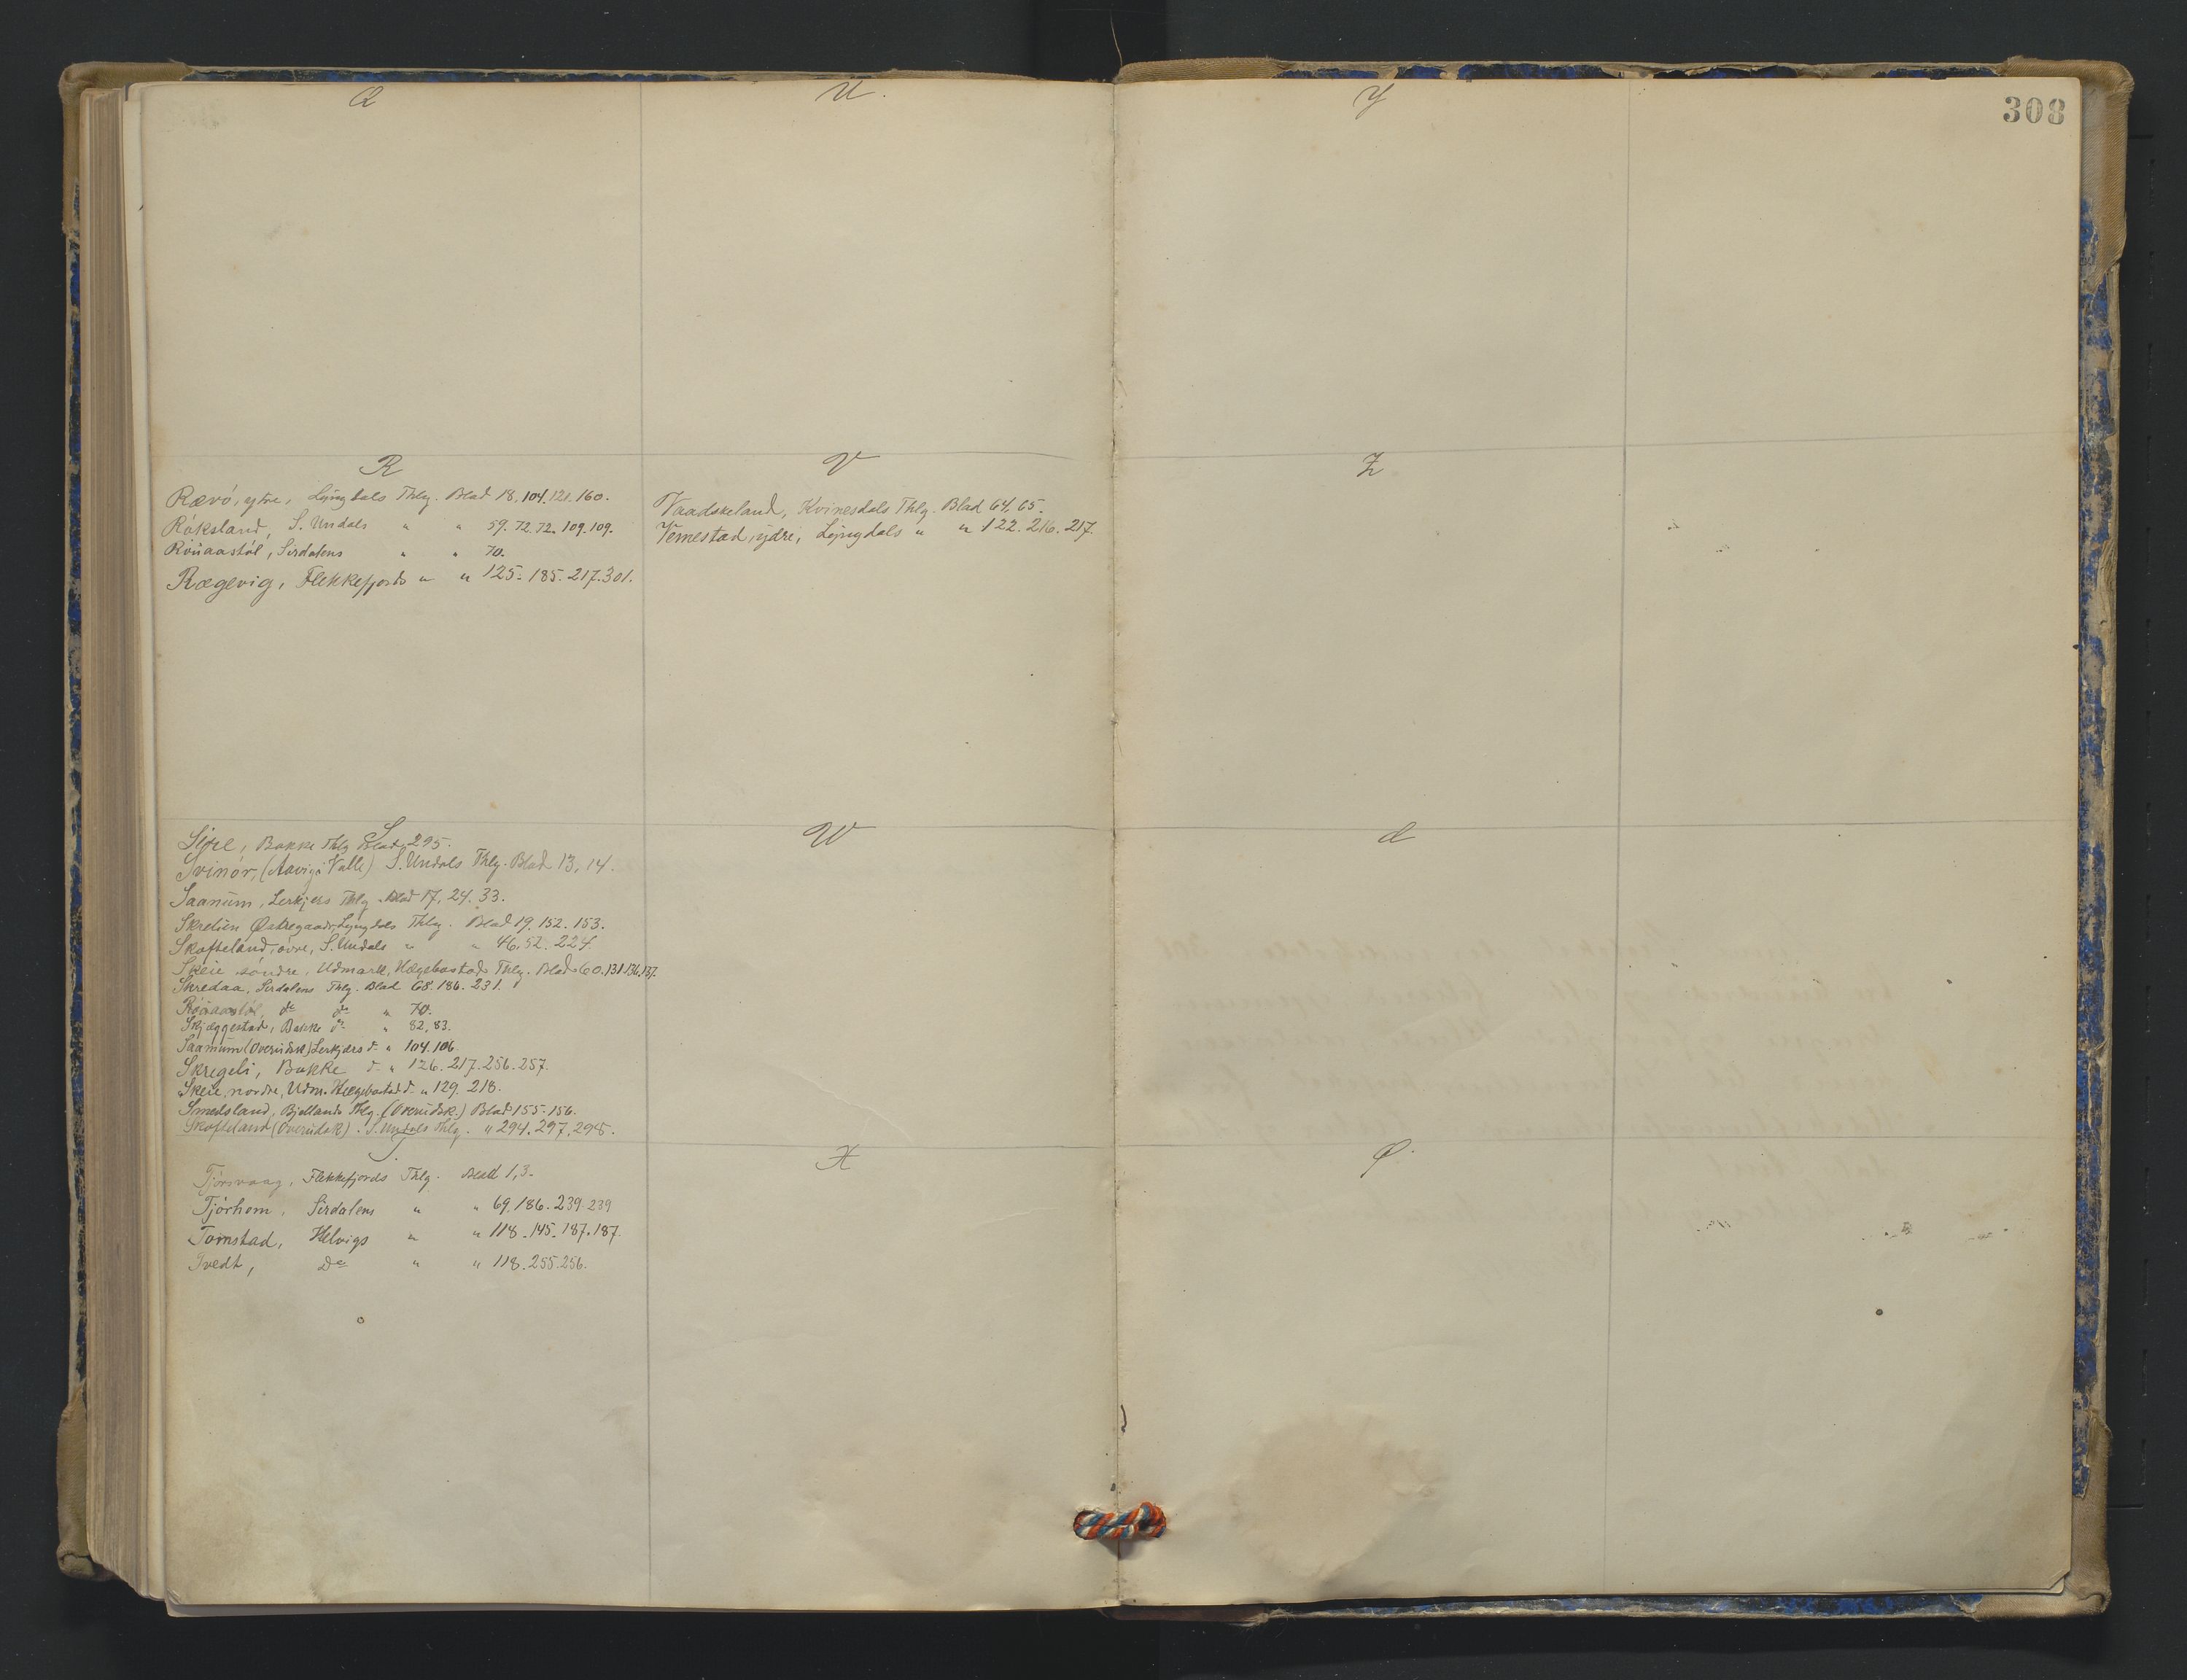 Q
R
Rævö, ytre, Lyngdals Thlg. Blad 18, 104. 121. 160.
Röksland, S. Undals " " 59. 72. 72. 109. 109.
Röüaastöl, Sirdalens " " 70.
Rægevig, Flekkefjords " " 125. 185. 217. 301.
S
Sire, Bakke Thlg Blad 295.
Svinör, (Aavig i Valle) S. Undals Thlg. Blad 13, 14.
Saanüm, Lerkjers Thlg. Blad 17, 24. 33.
Skretien Østregaard, Lyngdals Thlg. Blad 19. 152. 153.
Skofteland, övre, S. Undals " " 46. 52. 224.
Skeie söndre, Udmark, Hægebostad Thlg. Blad 60. 131 136. 137.
Skredaa, Sirdalens Thlg. Blad 68. 186. 231.
Röüaastöl, do do " 70.
Skjæggestad, Bakke do " 82, 83.
Saanüm (Overüdsk) Lerkjærs d. " 104. 106.
Skregeli, Bakke d. " 126. 217. 256. 257.
Skeie, nordre, Udm. Hægebostad d. " 129. 218.
Smedsland, Bjellands Thlg. (Overüdsk.) Blad 155. 156.
Skofteland (Overüdsk). S. Undals Thlg. " 294. 297. 298.
T
Tjörsvaag, Flekkefjords Thlg. Blad 1, 3.
Tjörhom, Sirdalens " " 69. 186. 239. 239
Tomstad, Helvigs " " 118. 145. 187. 187.
Tvedt, Do " " 118. 255. 256.
U.
V
Vaadskeland, Kvinesdals Thlg. Blad 64, 65.
Vemestad, ydre, Lyngdals " " 122. 216. 217.
W
X
308
Y
Z
Æ
Ø